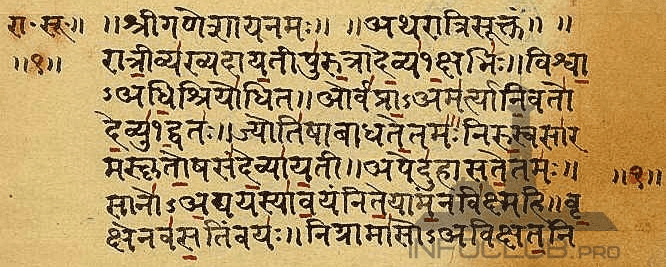 रा॰ सू॰ ॥ ॥श्रीगणेशायनमः॥ ॥अथरात्रिसूक्तं॥ ॥
॥१॥ रात्रीव्यख्यदायतीपुरुत्रादेव्य१क्षभिः॥विश्वा
ऽअधिश्रियोधित॥ओर्वप्राऽअमर्त्यानिवतो
देव्यु१द्वतः॥ज्योतिषाबाधतेतमः॥निरुस्वसार
मस्कृतोषसंदेव्यायती॥अपेदुहासतेतमः॥ ॥१॥
सानोऽअद्ययस्यावयंनितेयामन्नविक्ष्महि॥वृ
क्षेनवसतिंवयः॥निग्रामासोऽअविक्षतनि
INFOCLUB.PRO